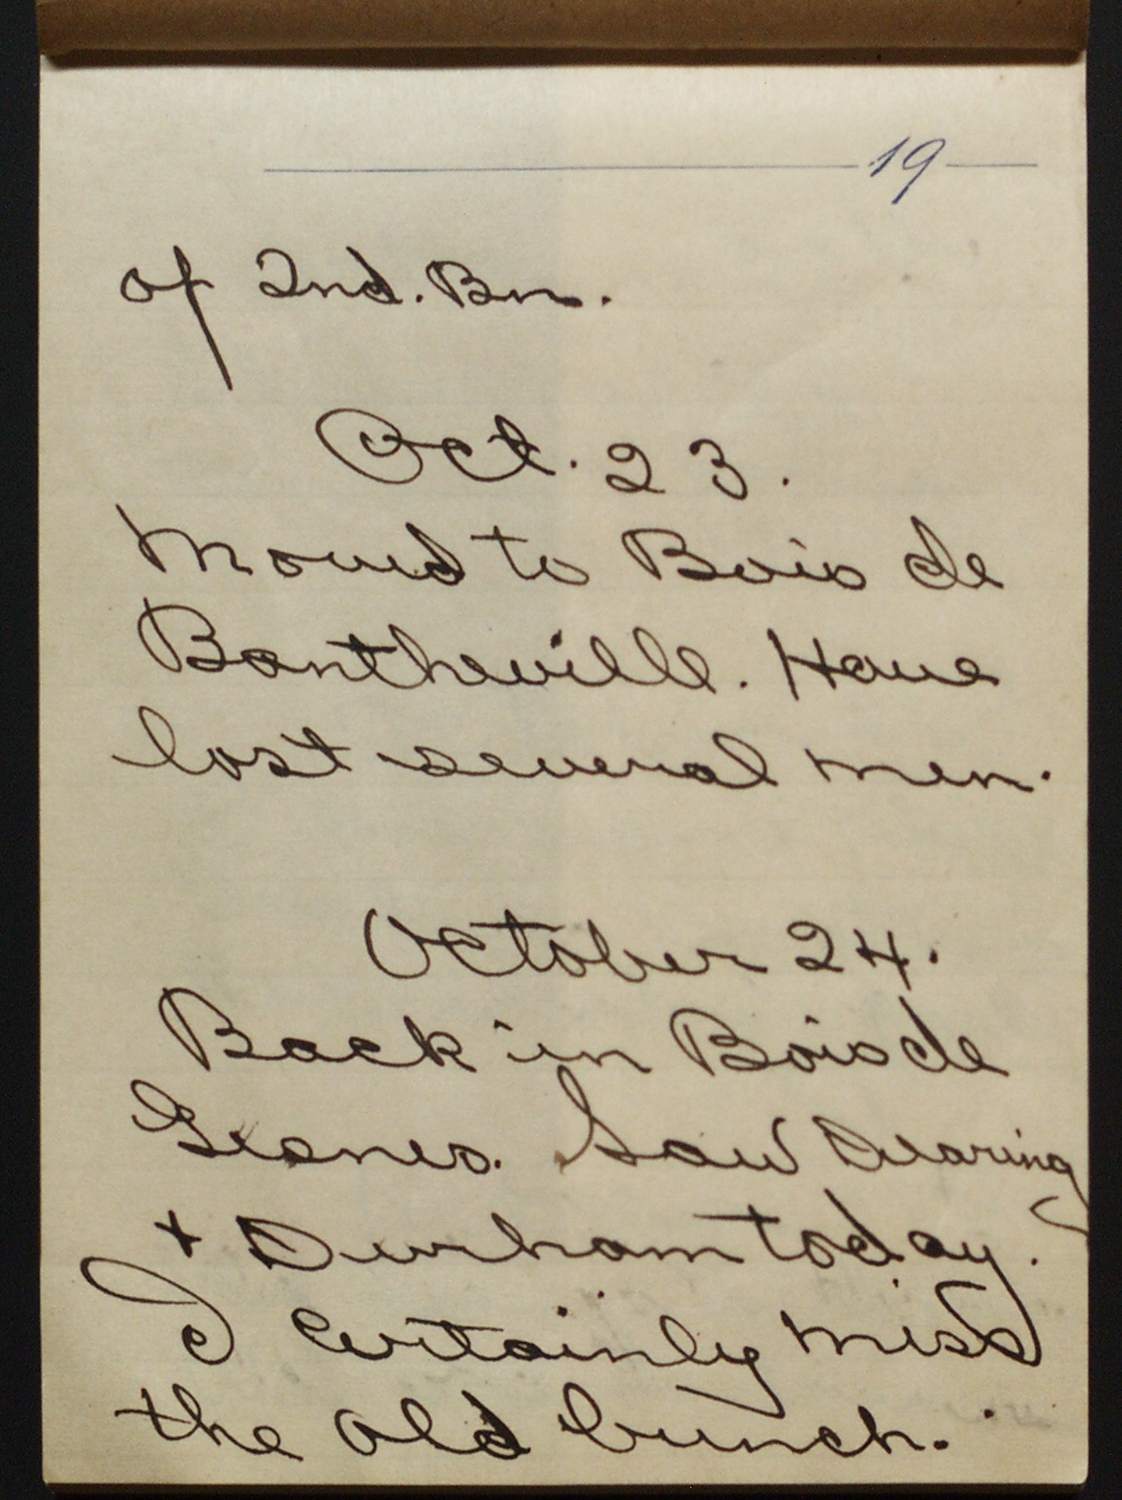 19
of 2nd. Bn.
Oct. 23.
Moved to Bois de
Bantheville. Have
lost several men.
October 24.
Back in Bois de
Gesnes. Saw Dearing
+ Durham today.
I certainly miss
the old bunch.